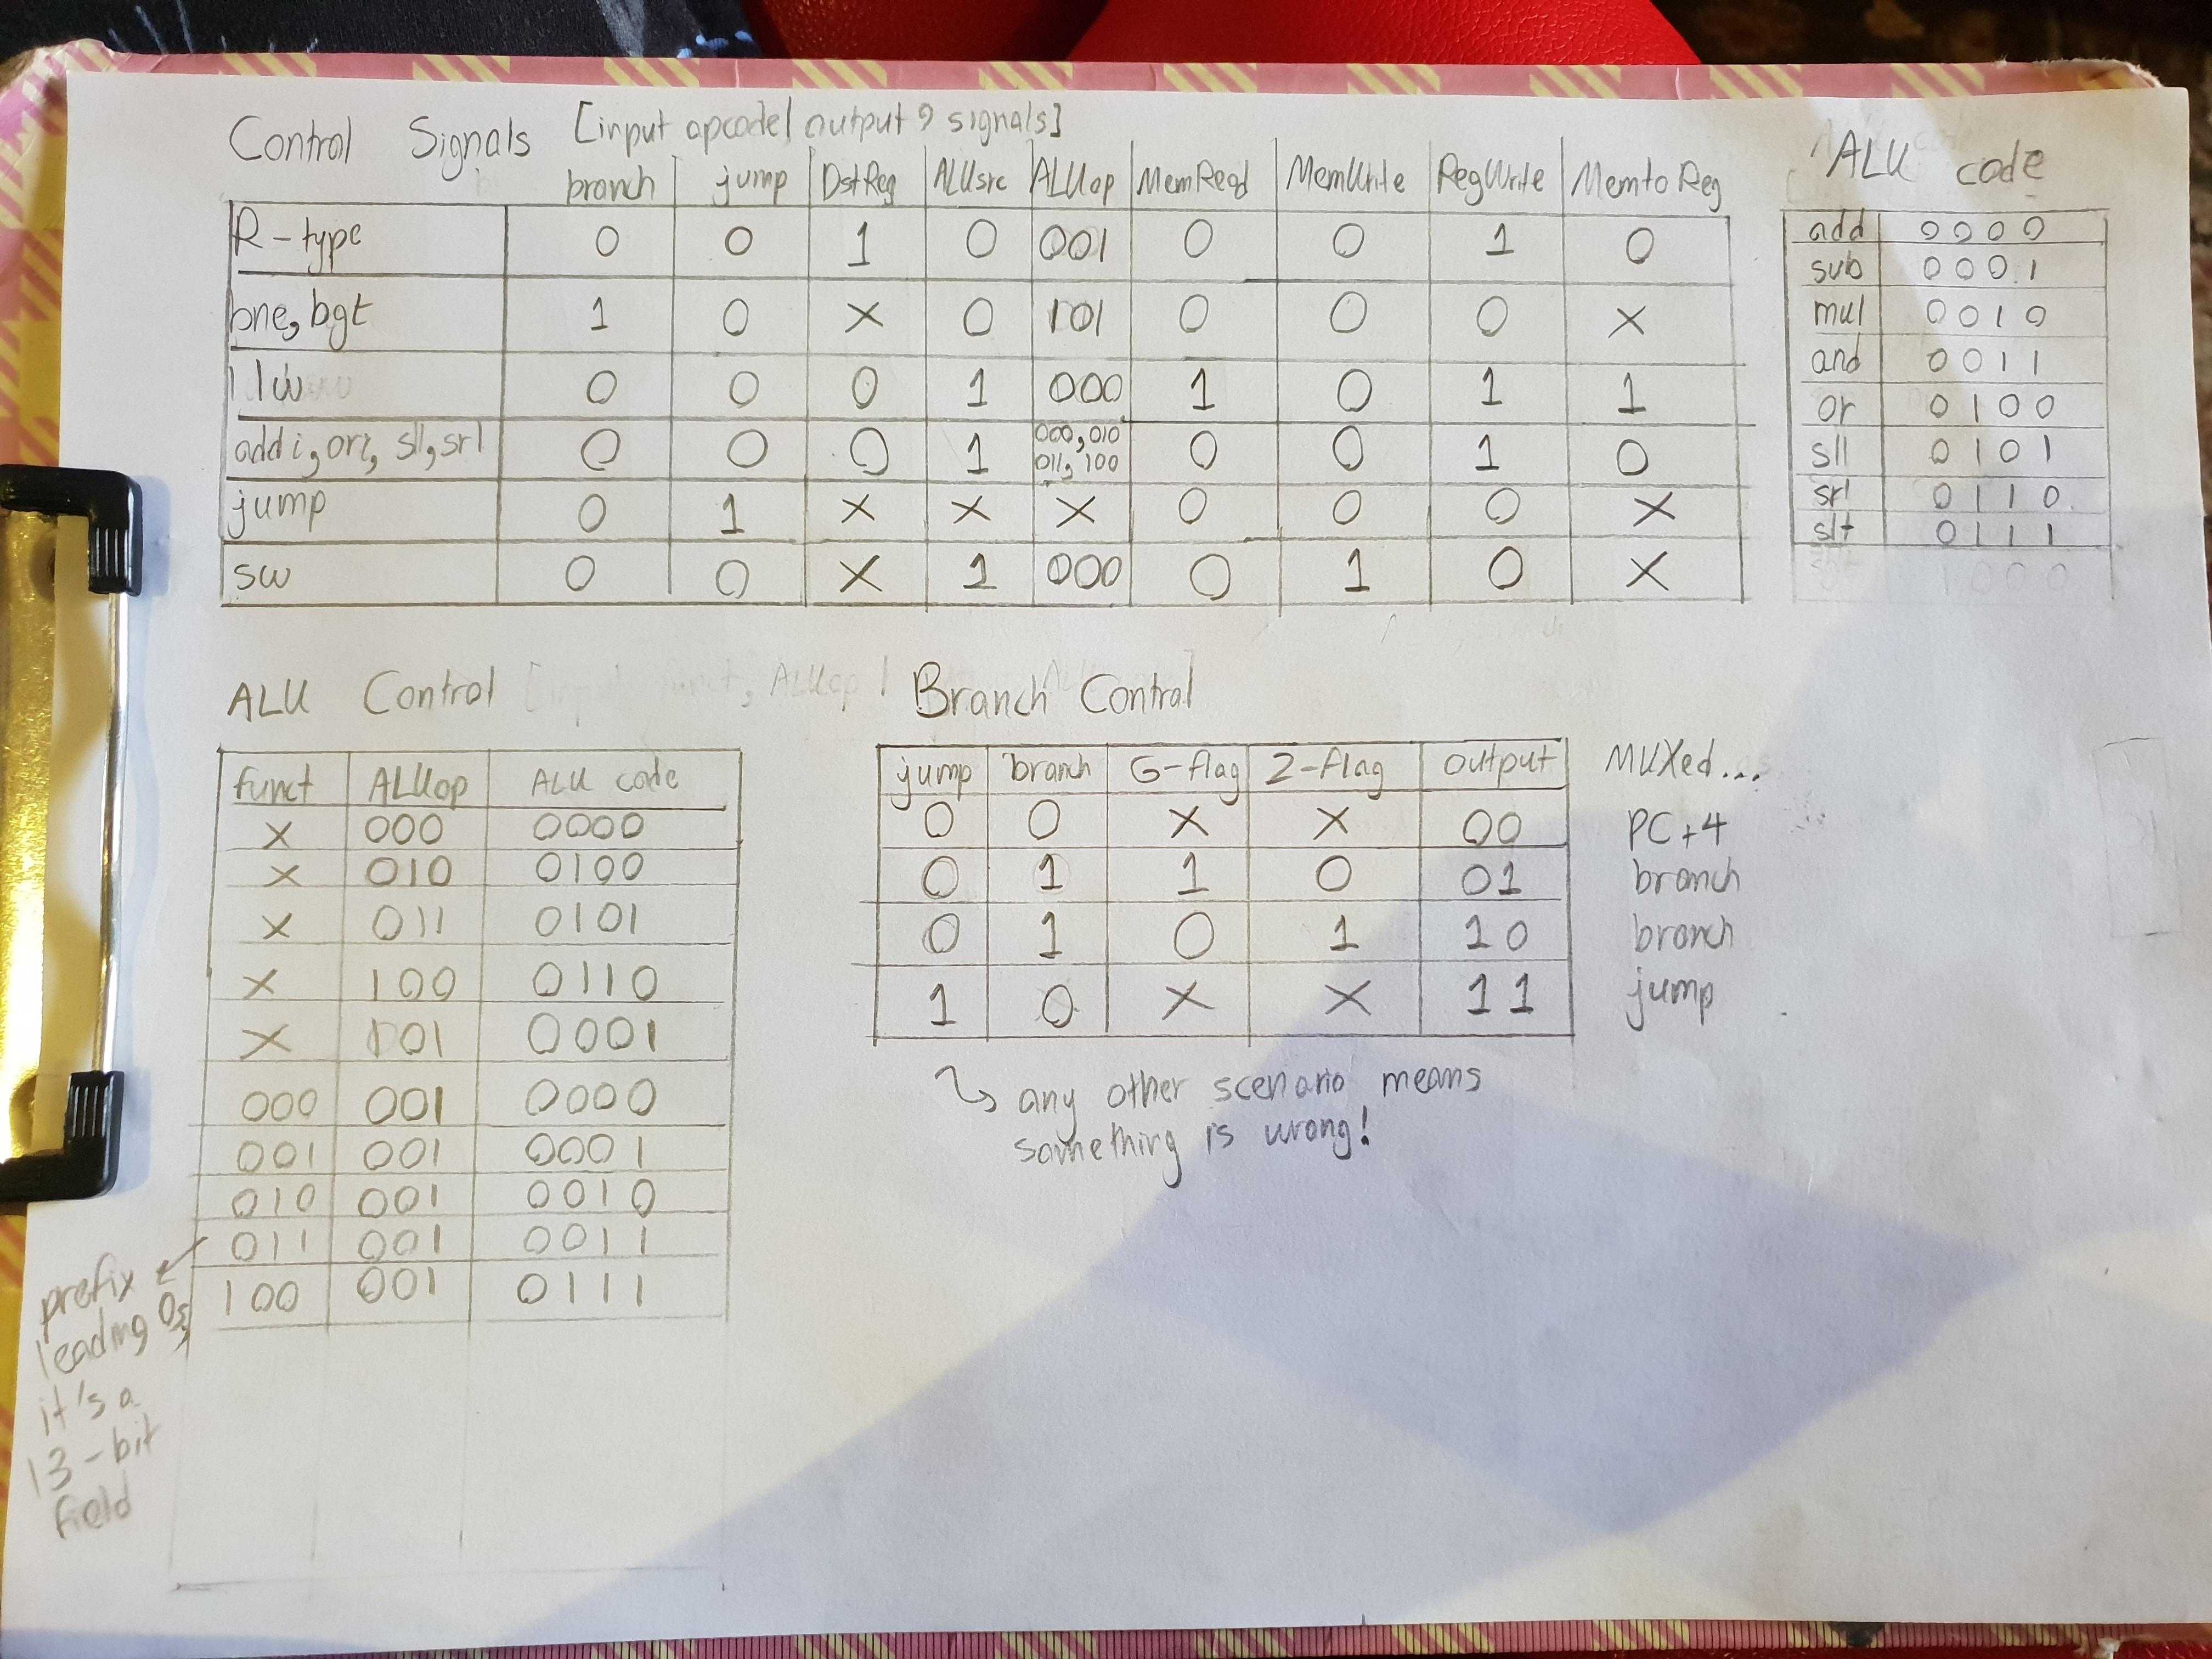 Control Signals [input opcode | output 9 signals]
branch jump DstReg ALUsrc ALUop MemRead MemWrite RegWrite MemtoReg
R-type 0 0 1 0 001 0 0 1 0
bne, bgt 1 0 X 0 101 0 0 0 X
lw 0 0 0 1 000 1 0 1 1
addi, ori, sll, srl 0 0 0 1 000, 010 011, 100 0 0 1 0
jump 0 1 X X X 0 0 0 X
sw 0 0 X 1 000 0 1 0 X
ALU code
add 0000
sub 0001
mul 0010
and 0011
or 0100
sll 0101
srl 0110
slt 0111
1000
ALU Control [input funct, ALUop |
funct ALUop ALU code
X 000 0000
X 010 0100
X 011 0101
X 100 0110
X 101 0001
000 001 0000
001 001 0001
010 001 0010
011 001 0011
100 001 0111
prefix
leading 0s,
it's a
13-bit
field
Branch Control
jump branch G-flag Z-flag output MUXed...
0 0 X X 00 PC+4
0 1 1 0 01 branch
0 1 0 1 10 branch
1 0 X X 11 jump
any other scenario means
something is wrong!